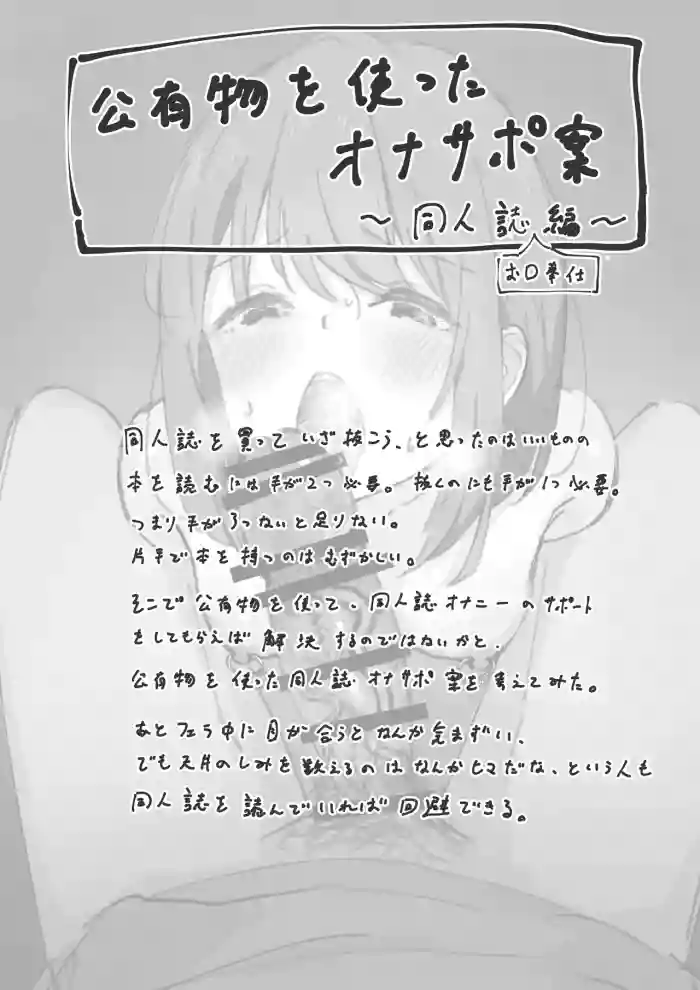 公有物を使った
オナサポ案
～同人誌編～
お口奉仕
同人誌を買っていざ抜こう、と思ったのはいいものの
本を読むには手が2つ必要。抜くのにも手が1つ必要。
つまり手が3つないと足りない。
片手で本を持つのはむずかしい。
そこで公有物を使って、同人誌オナニーのサポート
をしてもらえば解決するのではないかと、
公有物を使った同人誌オナサポ案を考えてみた。
あとフェラ中に目が合うとなんか気まずい、
でも天井のしみを数えるのはなんかヒマだな、という人も
同人誌を読んでいれば回避できる。